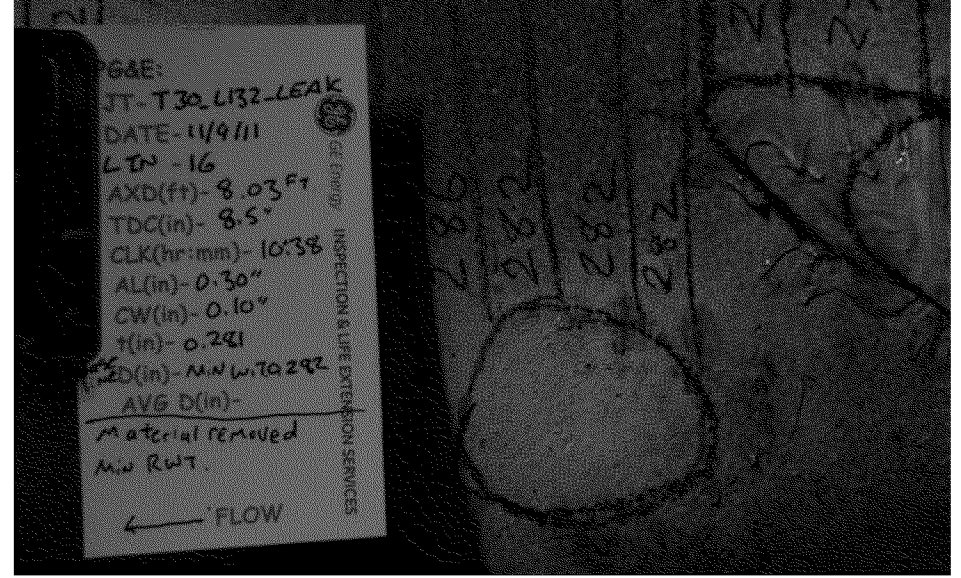 PG&E:
JT- T30_L132-LEAK
DATE- 11/9/11
LIN - 16
AXD(ft)- 8.03 FT
TDC(in)- 8.5"
CLK(hr:mm)- 10:38
AL(in)- 0.30"
CW(in)- 0.10"
t(in)- 0.281
D(in)- MIN W.T0 282
AVG D(in)-
Material removed
Min RWT.
FLOW
GE Energy
INSPECTION & LIFE EXTENSION SERVICES
286
282
282
282